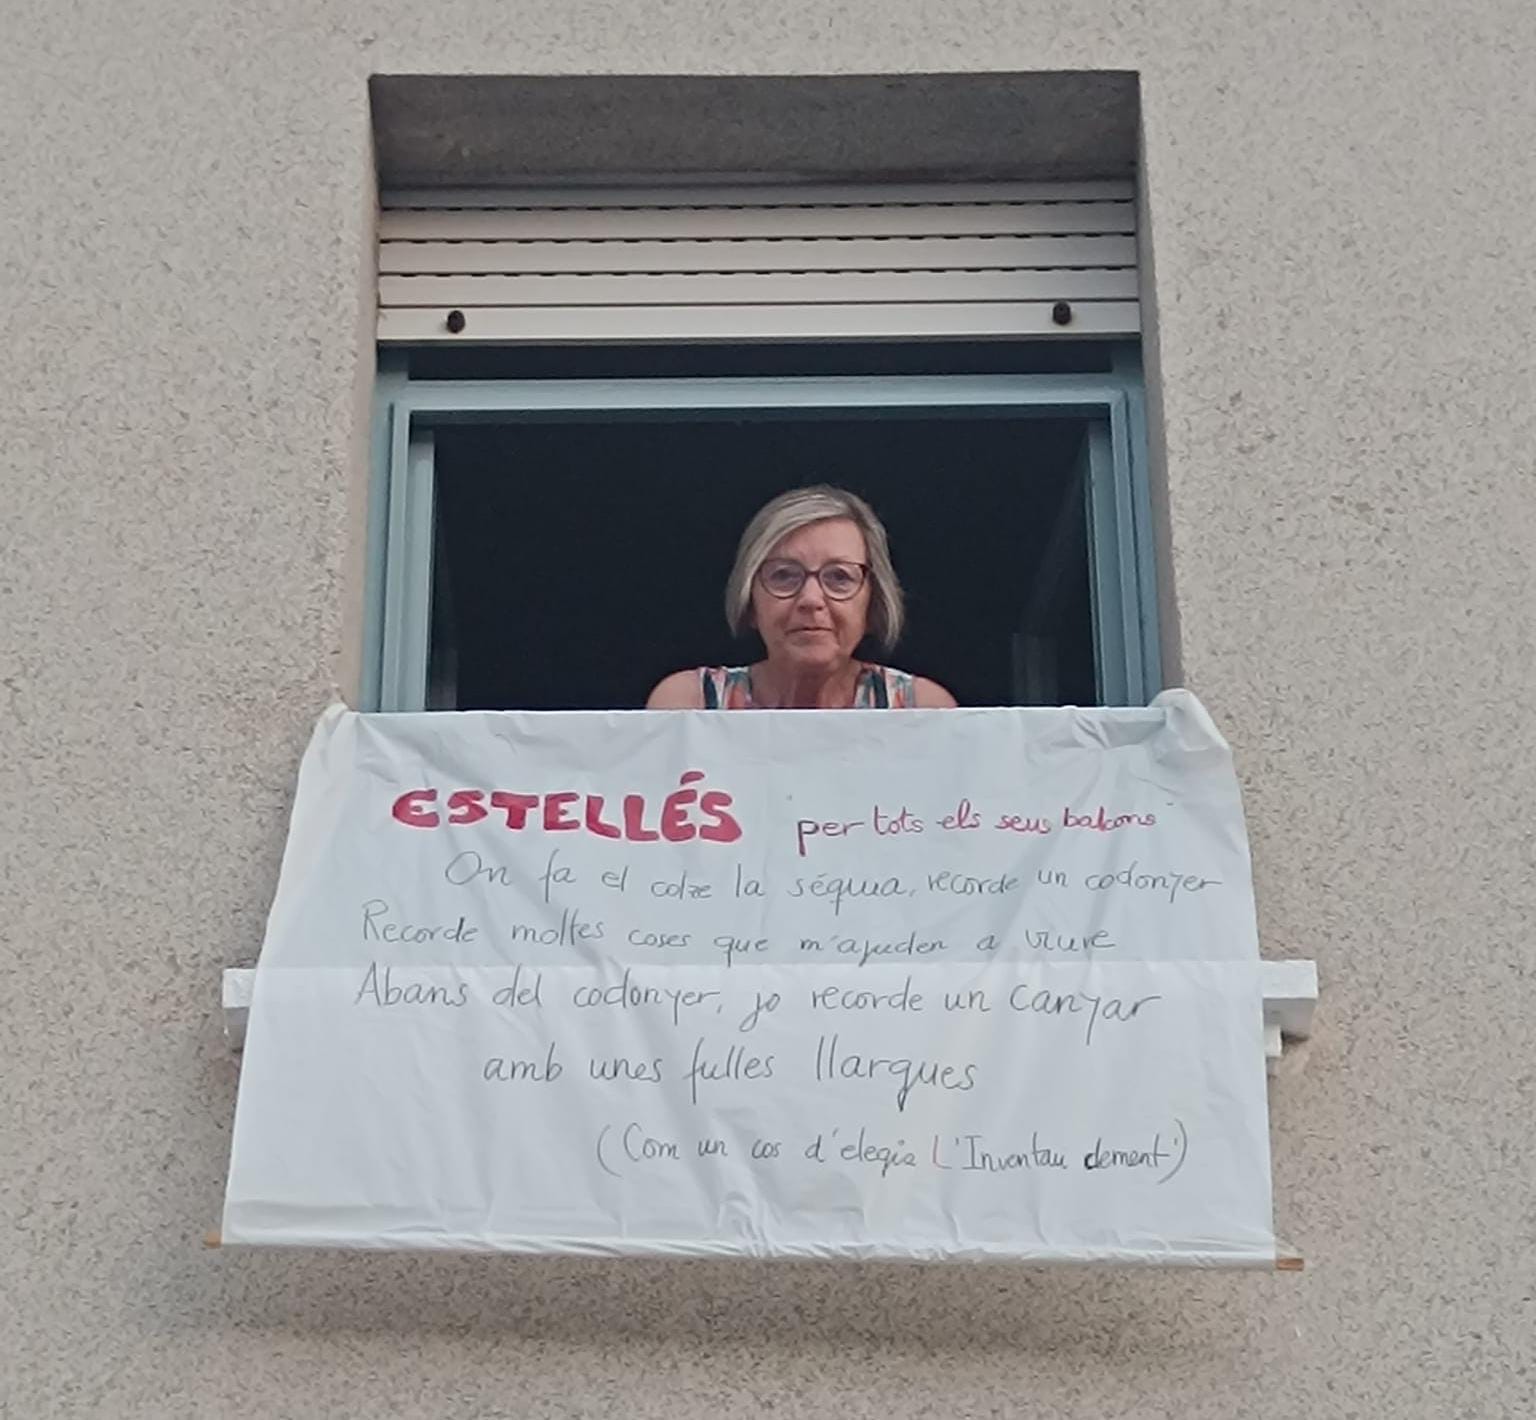 ESTELLÉS "per tots els seus balcons"
On fa el colze la séquia, recorde un codonyer
Recorde moltes coses que m'ajuden a viure
Abans del codonyer, jo recorde un canyar
amb unes fulles llargues
(Com un cos d'elegia L'Inventari dement')